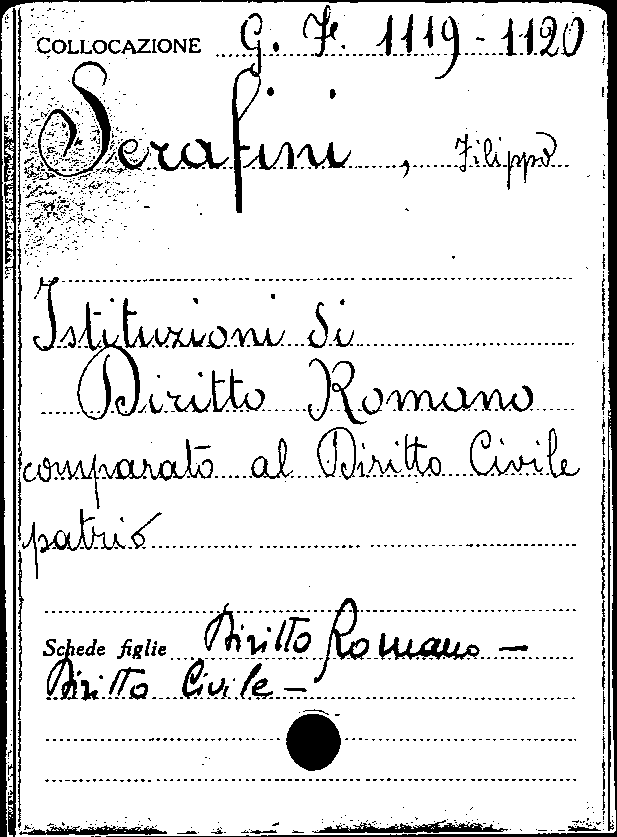 COLLOCAZIONE G. F. 1119-1120
Serafini, Filippo
Istituzioni di
Diritto Romano
comparato al Diritto Civile
patrio
Schede figlie Diritto Romano —
Diritto Civile —